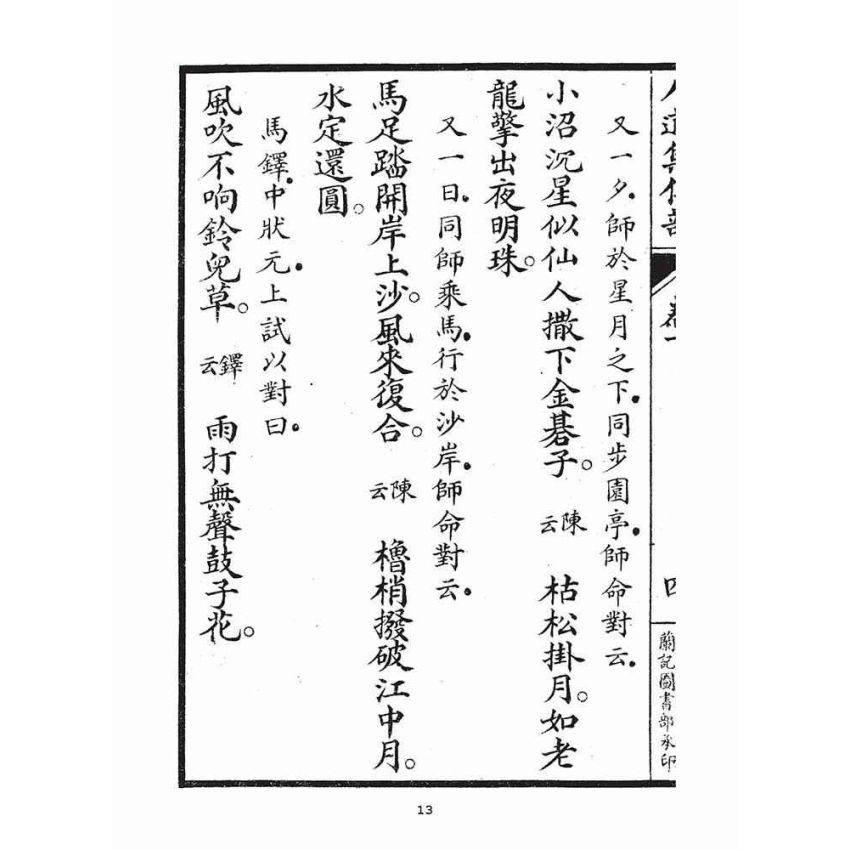 又一夕師於星月之下同步園亭師命對云
小沼沉星似仙人撒下金碁子。陳云 枯松掛月。如老
龍擎出夜明珠。
又一日同師乘馬行於沙岸師命對云
馬足踏開岸上沙。風來復合。陳云 櫓梢撥破江中月。
水定還圓。
馬鐸中狀元上試以對曰
風吹不响鈴兒草。鐸云 雨打無聲鼓子花。
蘭記圖書部承印
13